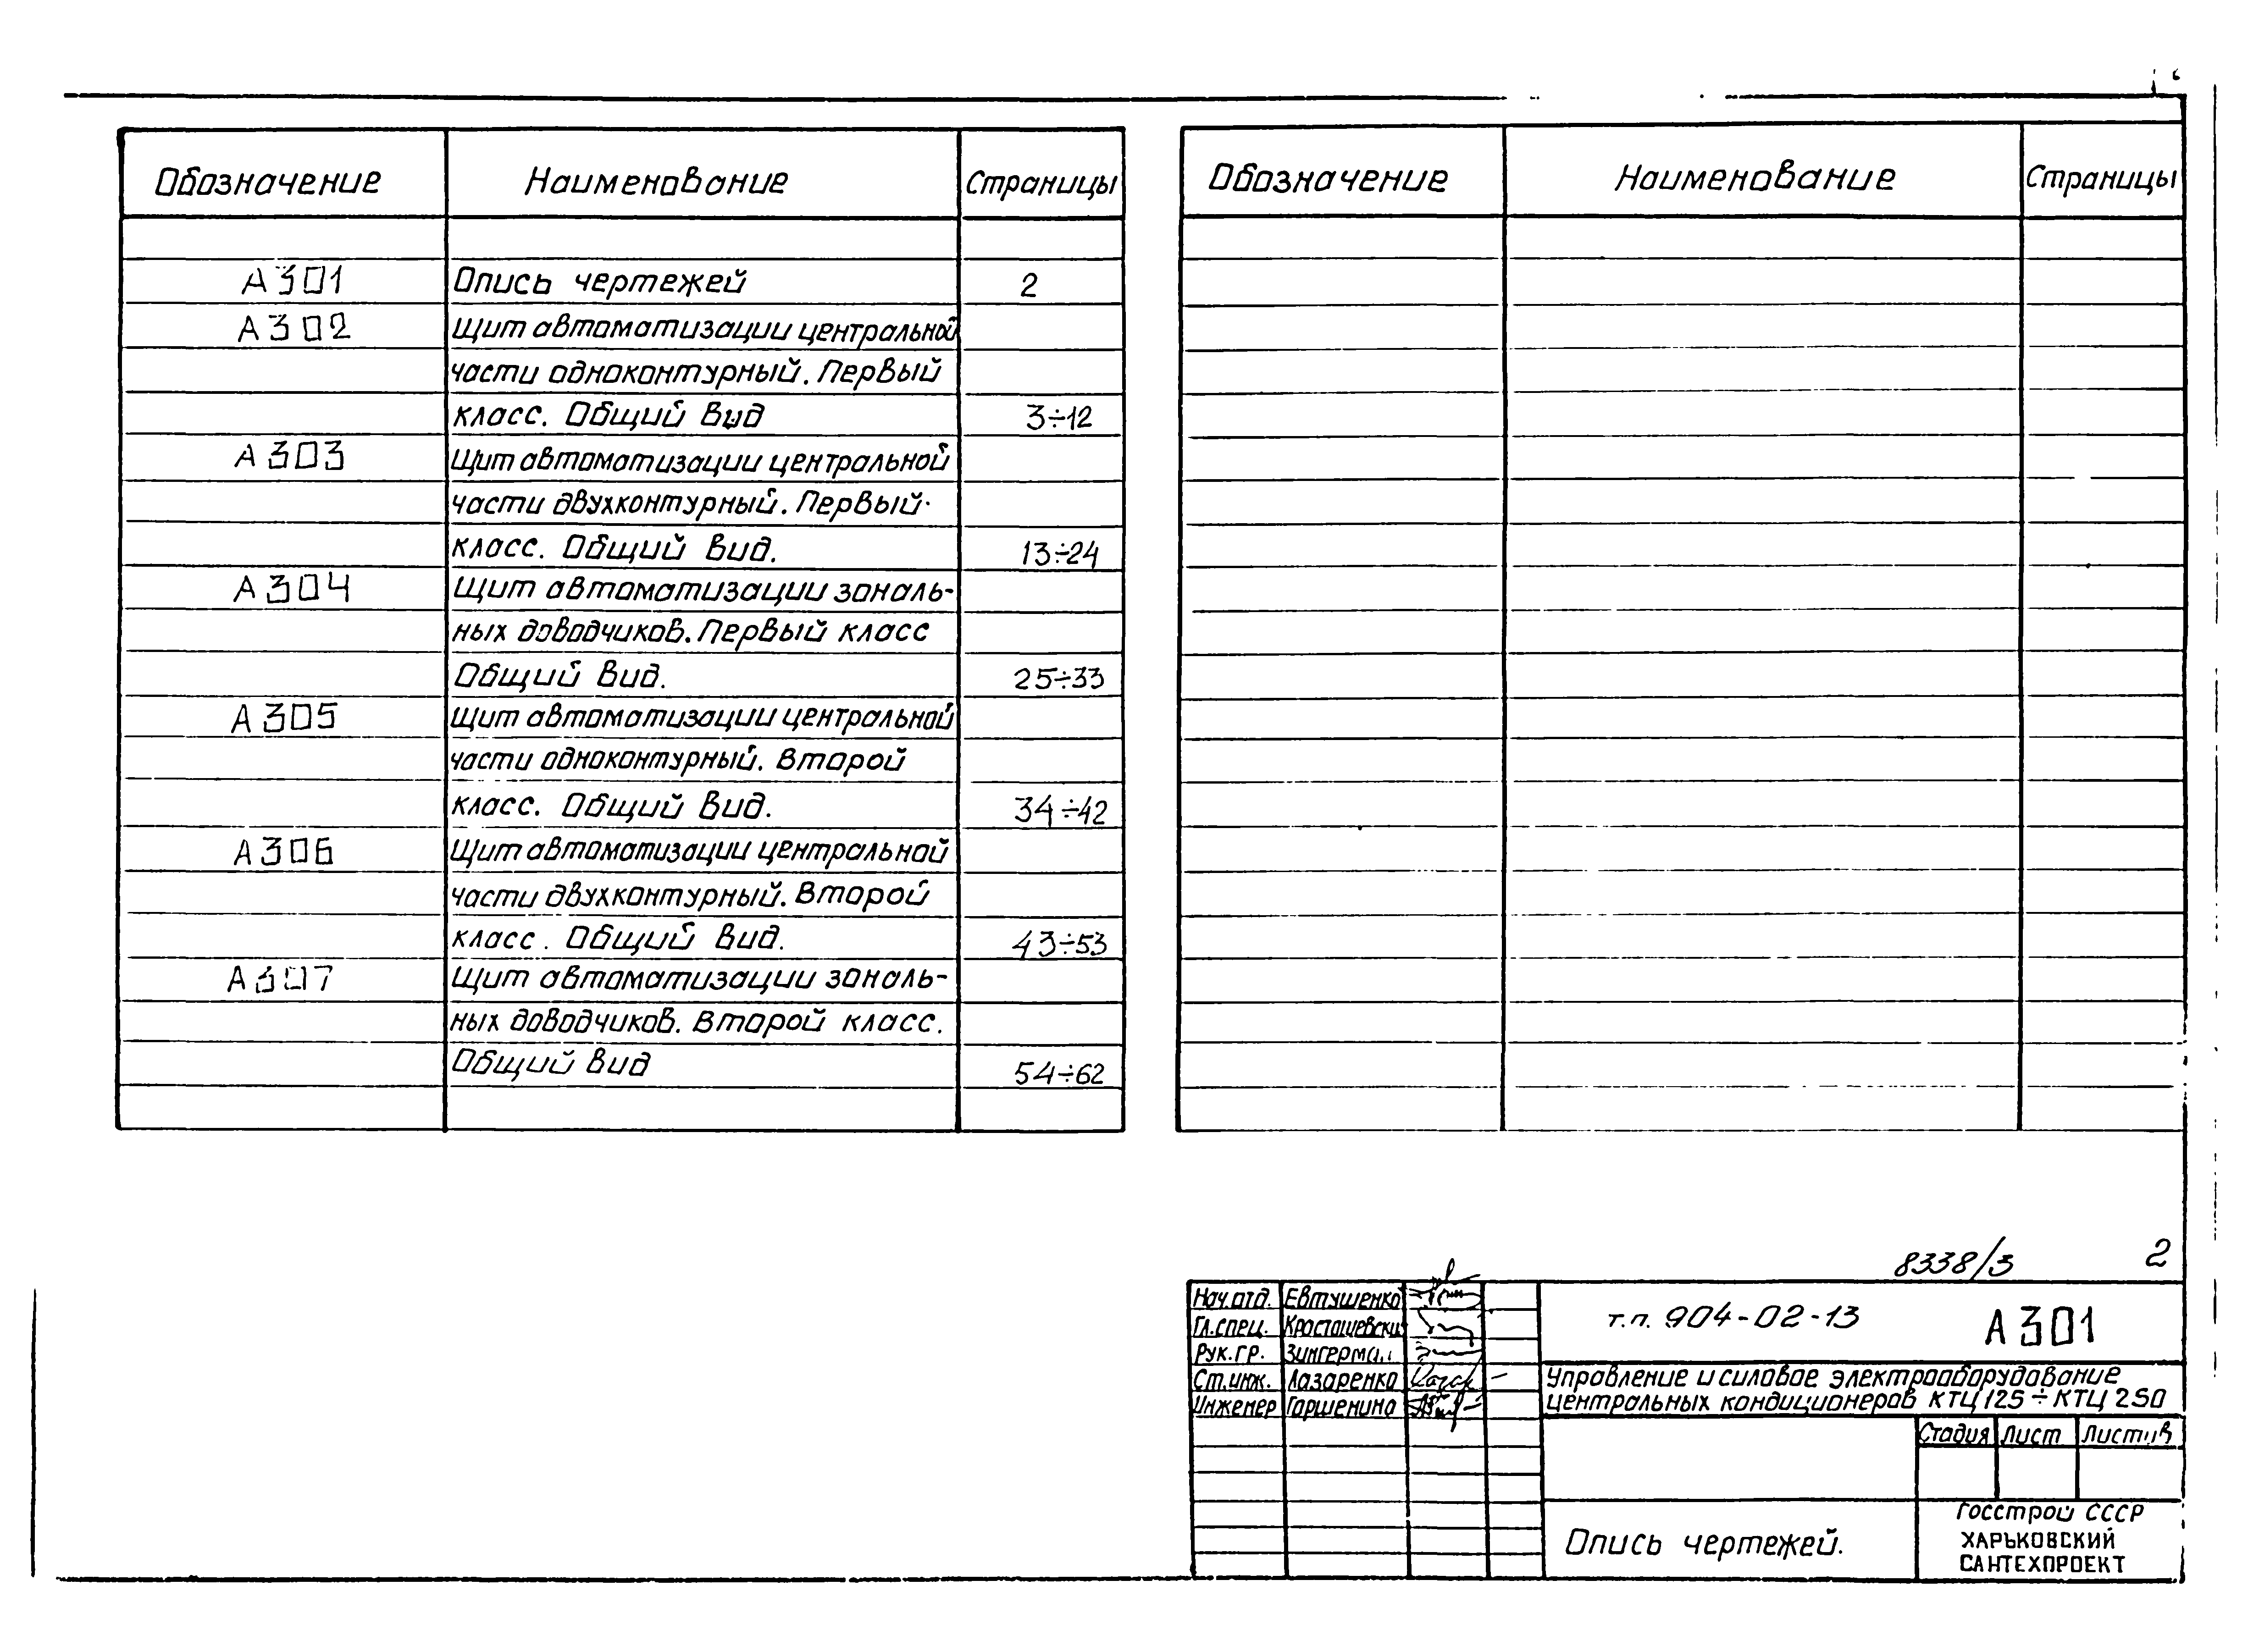 Обозначение Наименование Страницы
А301 Опись чертежей 2
А302 Щит автоматизации центральной
части одноконтурный. Первый
класс. Общий вид 3÷12
А303 Щит автоматизации центральной
части двухконтурный. Первый
класс. Общий вид. 13÷24
А304 Щит автоматизации зональ-
ных доводчиков. Первый класс
Общий вид. 25÷33
А305 Щит автоматизации центральной
части одноконтурный. Второй
класс. Общий вид. 34÷42
А306 Щит автоматизации центральной
части двухконтурный. Второй
класс. Общий вид. 43÷53
А307 Щит автоматизации зональ-
ных доводчиков. Второй класс.
Общий вид 54÷62
Обозначение Наименование Страницы
8338/3 2
Нач.отд. Евтушенко
Гл.спец.
Рук.гр.
Ст.инж. Лазаренко
Инженер Гаршенина
т.п. 904-02-13 А301
Управление и силовое электрооборудование
центральных кондиционеров КТЦ 125÷КТЦ 250
Стадия Лист Листов
Опись чертежей.
Госстрой СССР
ХАРЬКОВСКИЙ
САНТЕХПРОЕКТ